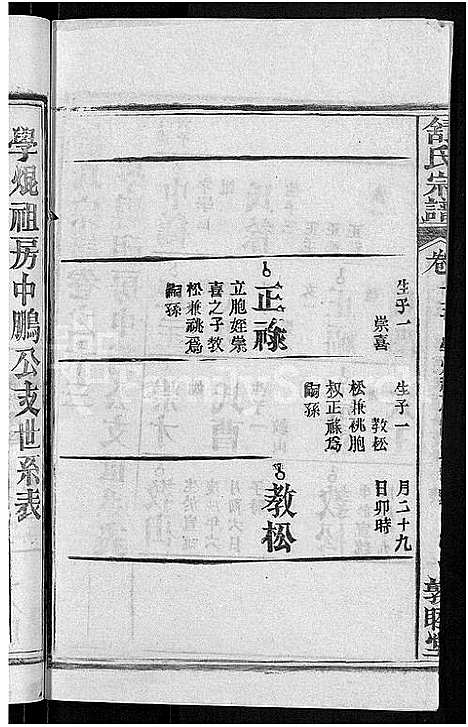 舒氏宗譜
卷十
生子一
崇喜
正祿
立胞姪崇
喜之子教
松兼祧爲
嗣孫
生子一
教松
松兼祧胞
叔正祿爲
嗣孫
月二十九
日卯時
教松
敦睦堂
學焜祖房中鵬公支世系表